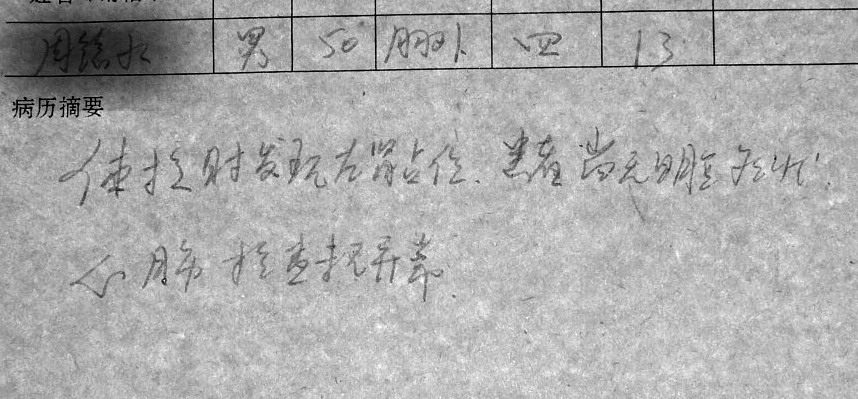 男 50 胸外 四 13
病历摘要
体检时发现右肾占位、患者尚无明显症状.
心肺检查未见异常.